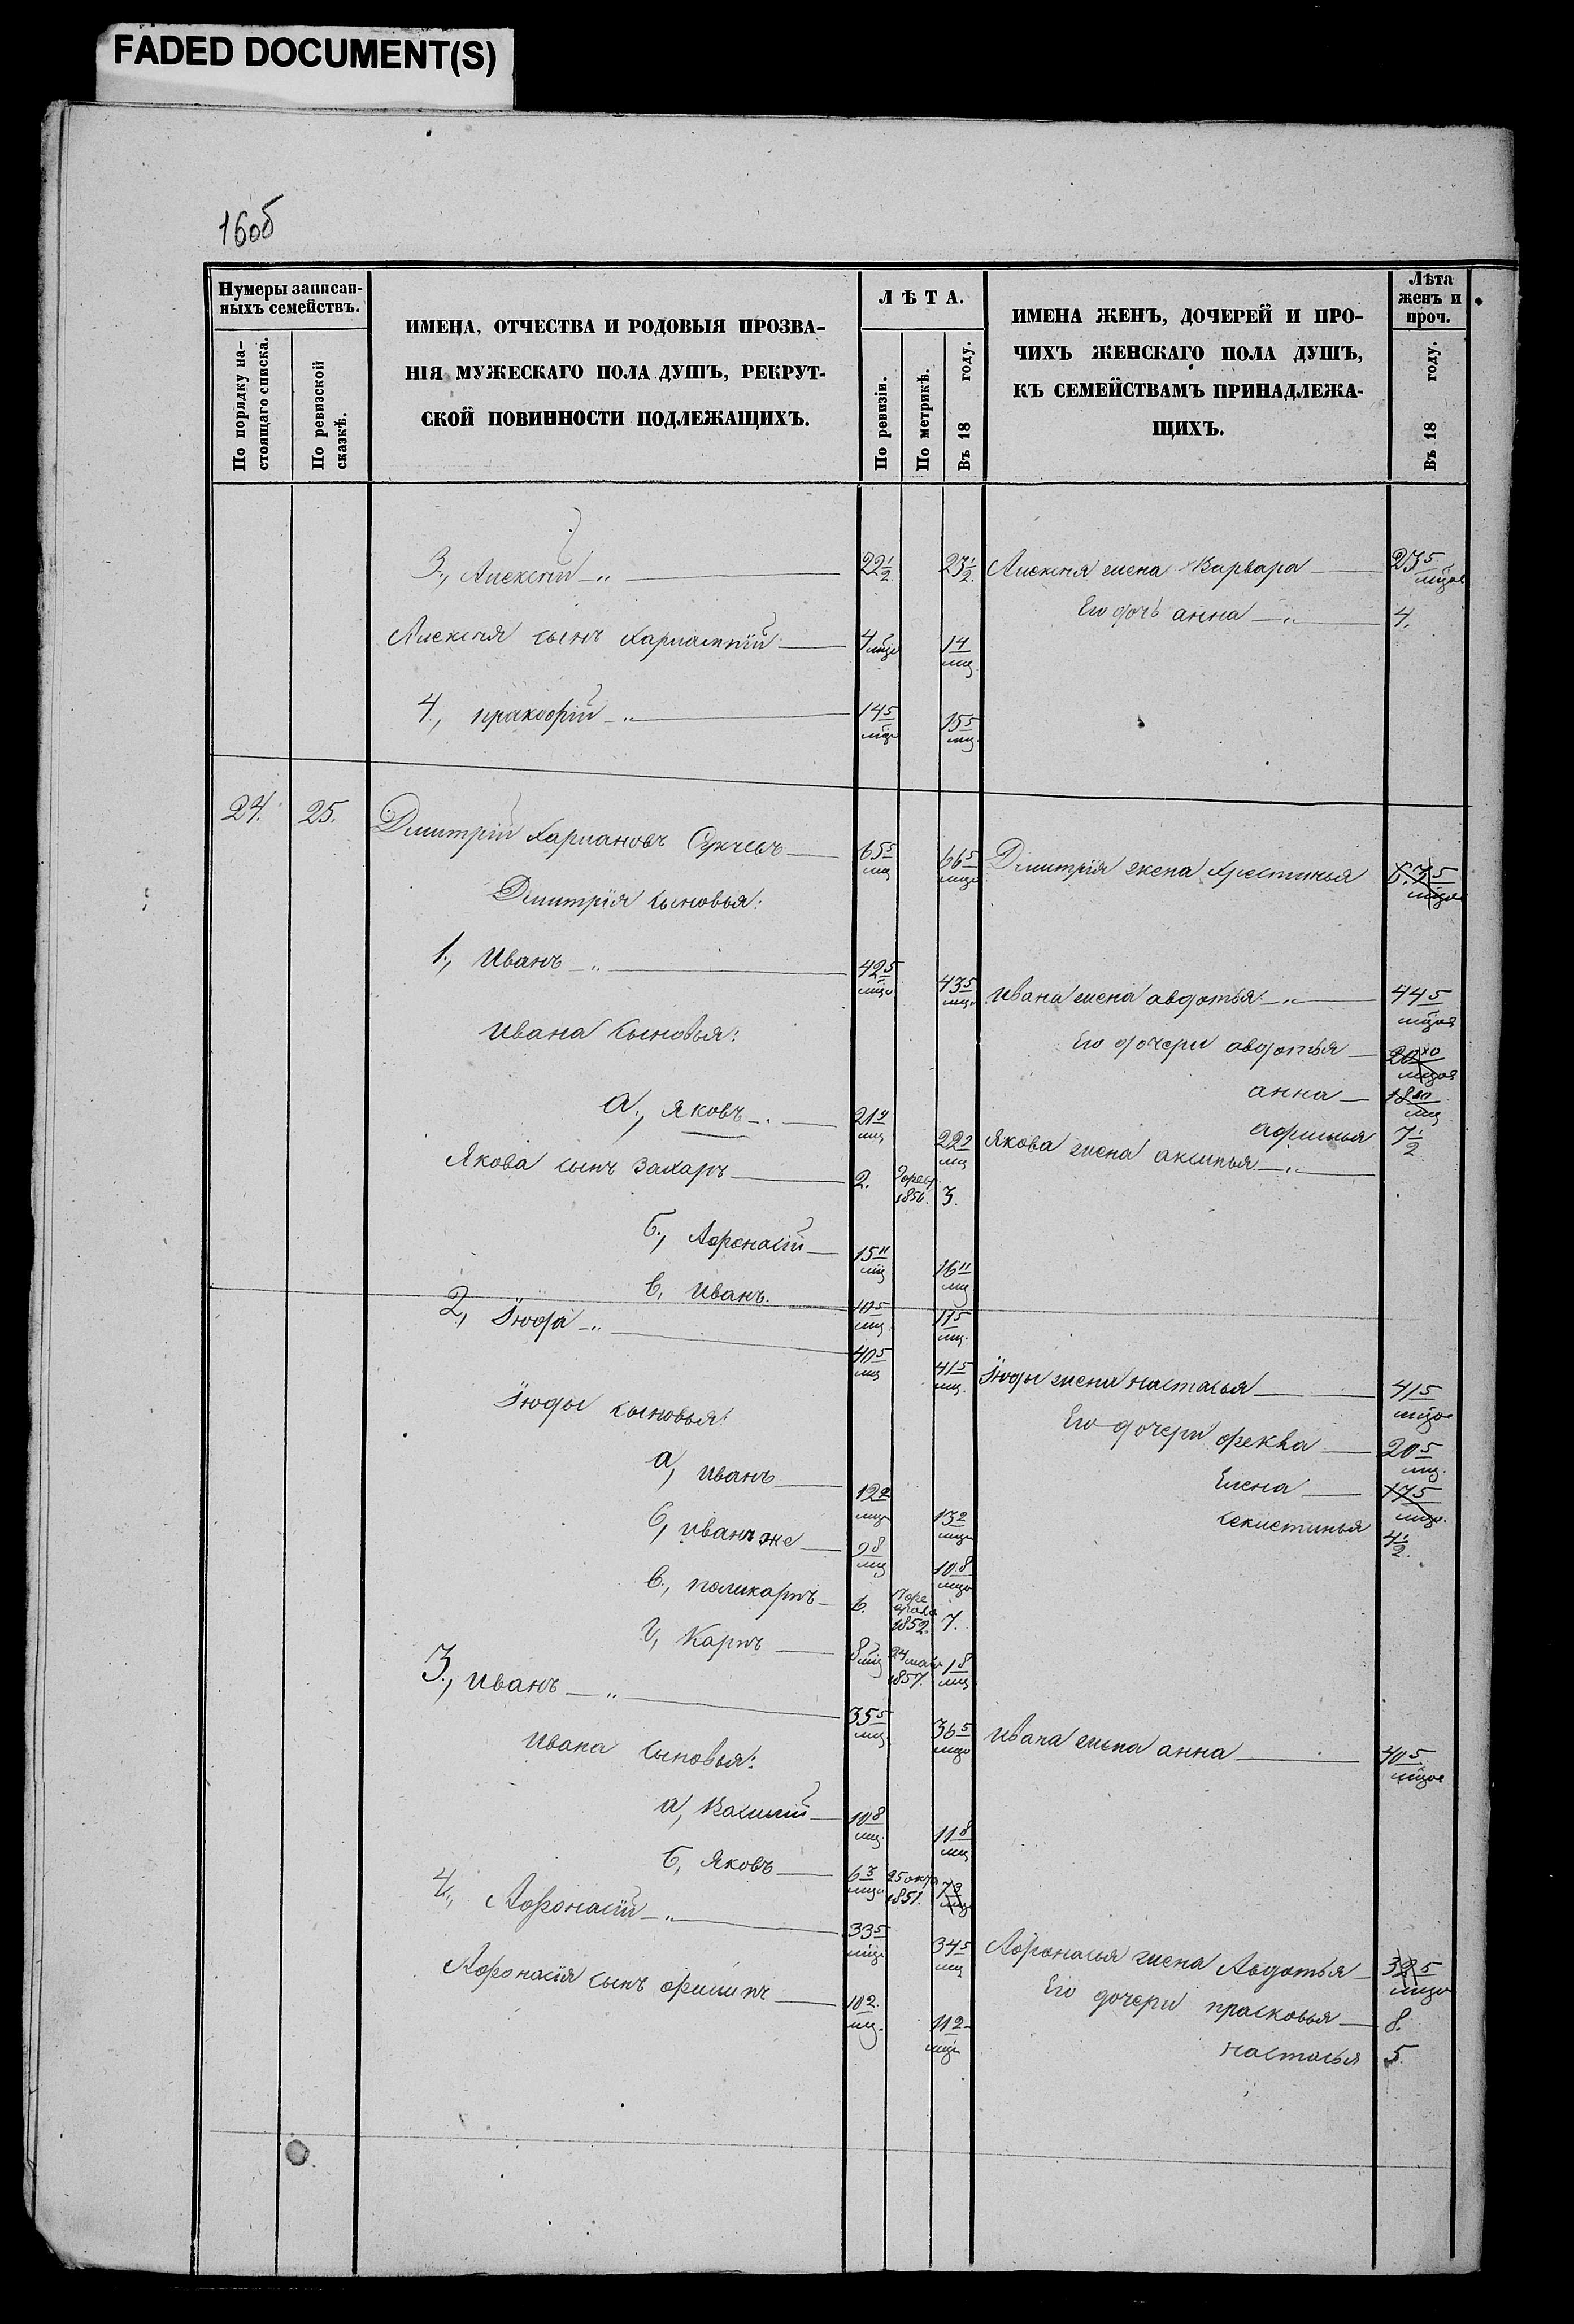 FADED DOCUMENT(S)
16об
Нумеры записан-
ныхъ семействъ.
По порядку на-
стоящаго списка.
По ревизской
сказкѣ.
ИМЕНА, ОТЧЕСТВА И РОДОВЫЯ ПРОЗВА-
НІЯ МУЖЕСКАГО ПОЛА ДУШЪ, РЕКРУТ-
СКОЙ ПОВИННОСТИ ПОДЛЕЖАЩИХЪ.
ЛѢТА.
По ревизіи.
По метрикѣ.
Въ 18 году.
ИМЕНА ЖЕНЪ, ДОЧЕРЕЙ И ПРО-
ЧИХЪ ЖЕНСКАГО ПОЛА ДУШЪ,
КЪ СЕМЕЙСТВАМЪ ПРИНАДЛЕЖА-
ЩИХЪ.
Лѣта
женъ и
проч.
Въ 18 году.
3., Алексѣй 22 1/2 23 1/2. Алексѣя жена Варвара 23 5/мцов
Его дочь анна 4.
Алексѣя сынъ 4 мцо 1 4/мц
4., пракофій 14 5/мцо 15 5/мц.
24. 25. Дмитрій Харлановъ 65 5/мц 66 5/мцо Дмитрія жена Хрестинья
Дмитрія сыновья:
1., Иванъ 42 5/мцо 43 5/мцо Ивана жена авдотья 44 5/мцов
Ивана сыновья: Его дочери авдотья 20 10/мцов
анна 18 10/мц
а., яковъ 21 9/мц 22 9/мц афимья 7 1/2
Якова жена аксинья
Якова сынъ Захаръ 2. 1856. 3.
б., Афонасій 15 11/мц 16 11/мц
в, иванъ. 10 5/мц 11 5/мц.
2., Іюда 40 5/мц 41 5/мц. Іюды жена настасья 41 5/мцов
Іюды сыновья: Его дочери фекла 20 5/мц.
а, иванъ 12 2/мцо 13 2/мцо Елена 17 5/мцо.
б, иванъ же 9 8/мц 10 8/мцо секлетинья 4 1/2.
в., поликарпъ 6. 1852. 7.
г, Карпъ 8 мц 24 мая 1857. 1 8/мц
3., иванъ 35 5/мц 36 5/мцо Ивана жена анна 40 5/мцов
Ивана сыновья:
а, Василій 10 8/мц. 11 8/мц
б, Яковъ 6 3/мцо 25 окт 1851. 7 3/мцо
4., Афонасій 33 5/мцо 34 5/мц Афонасья жена Авдотья 32 5/мцо
Афонасія сынъ филипъ 10 2/мц. 11 2/мцо Его дочери прасковья 8.
настасья 5.